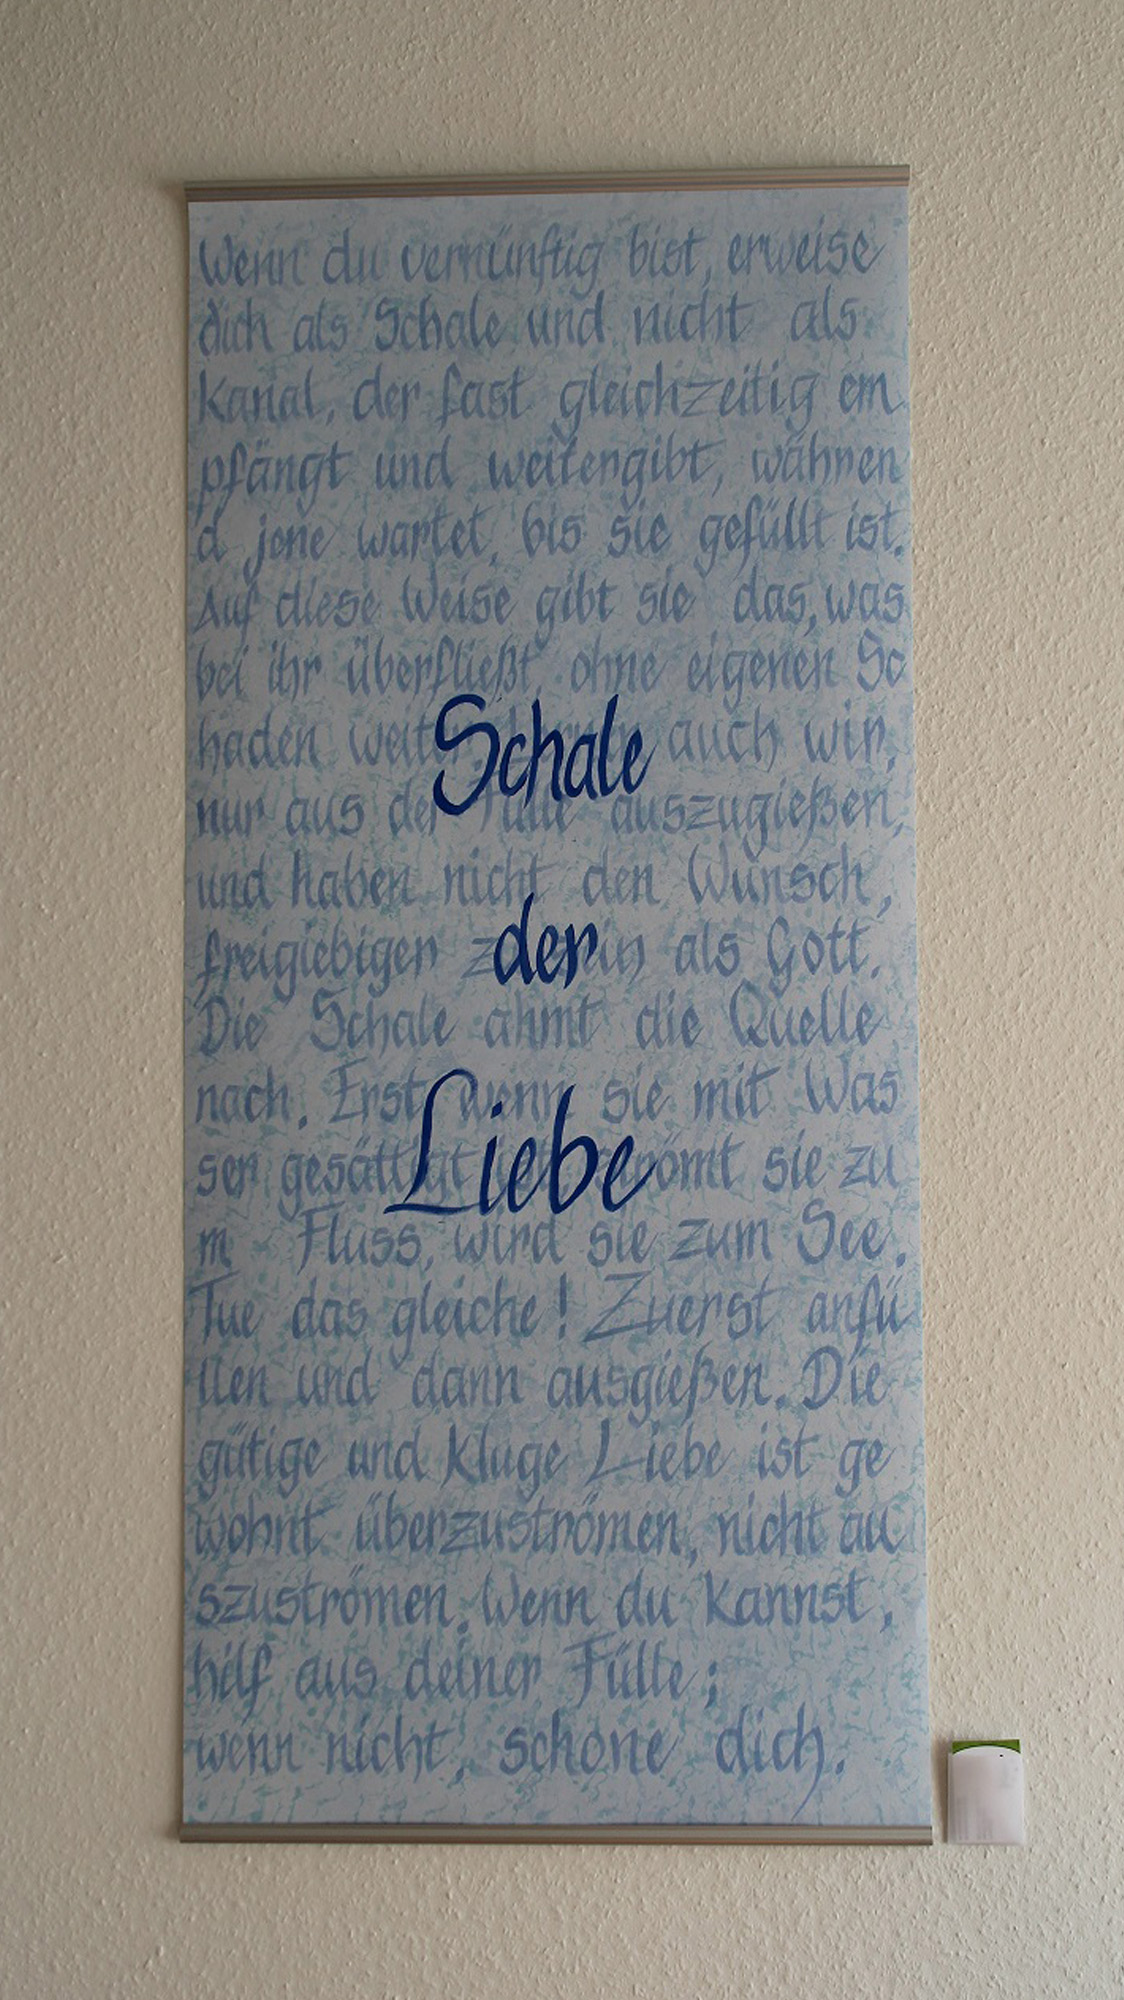 Wenn du vernünftig bist, erweise
dich als Schale und nicht als
Kanal, der fast gleichzeitig em
pfängt und weitergibt, währen
d jene wartet, bis sie gefüllt ist.
Auf diese Weise gibt sie das, was
bei ihr überfließt ohne eigenen Sc
haden auch wir,
Schale
nur aus der auszugießen,
und haben nicht den Wunsch,
freigiebiger als Gott.
der
Die Schale ahmt die Quelle
nach. Erst wenn sie mit Was
ser gesättigt sie zu
Liebe
m Fluss, wird sie zum See.
Tue das gleiche! Zuerst anfü
llen und dann ausgießen. Die
gütige und kluge Liebe ist ge
wohnt überzuströmen, nicht au
szuströmen. Wenn du kannst,
hilf aus deiner Fülle;
wenn nicht, schone dich.